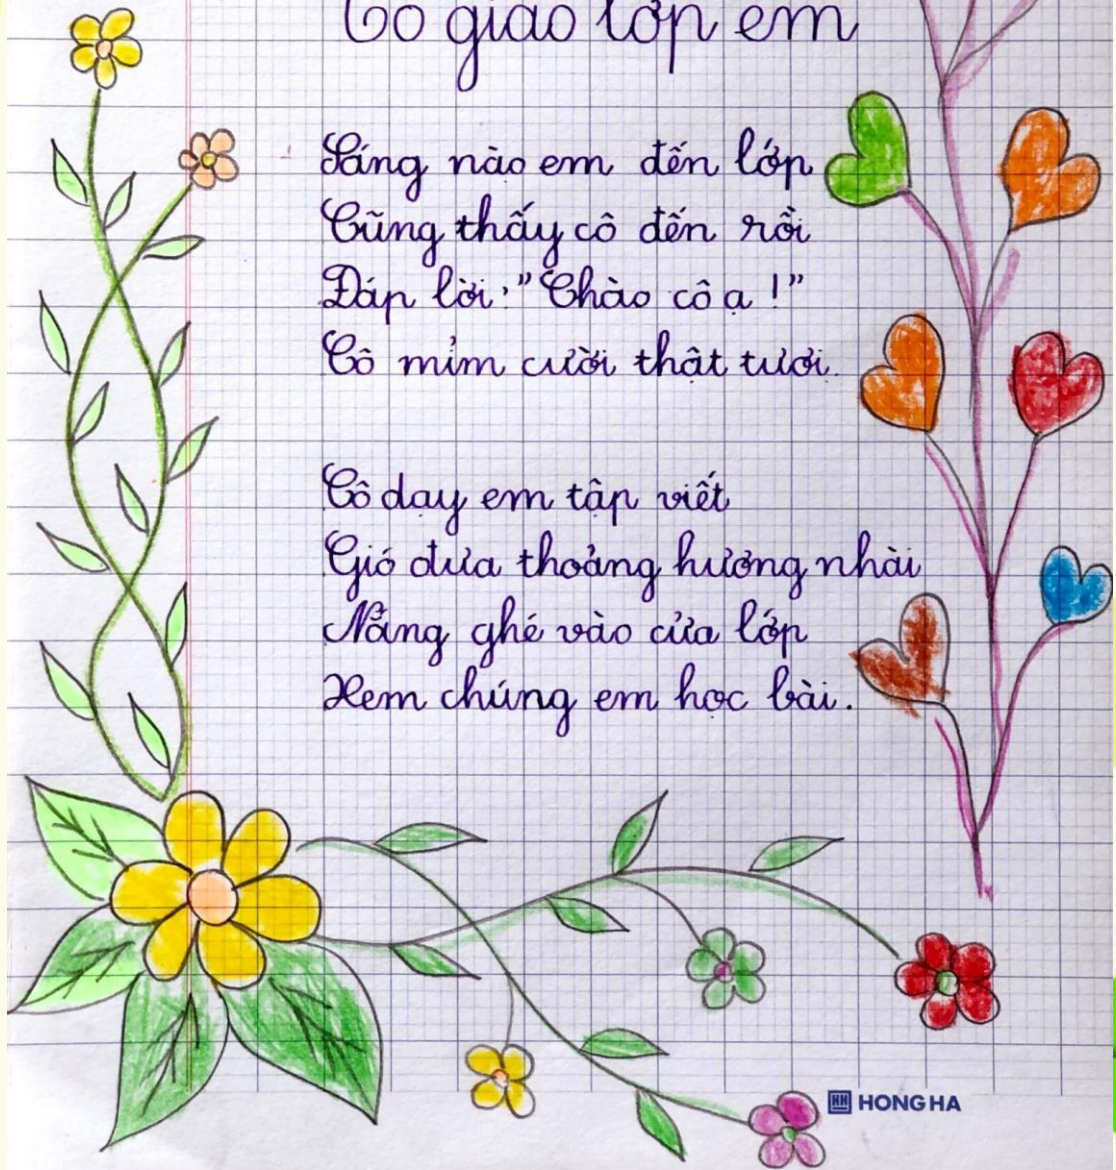 Cô giáo lớp em
Sáng nào em đến lớp
Cũng thấy cô đến rồi
Đáp lời "Chào cô ạ !"
Cô mỉm cười thật tươi.
Cô dạy em tập viết
Gió đưa thoảng hương nhài
Nắng ghé vào cửa lớp
Xem chúng em học bài.
HONG HA